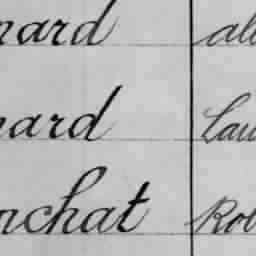 nard al
nard Lau
nchat Rob